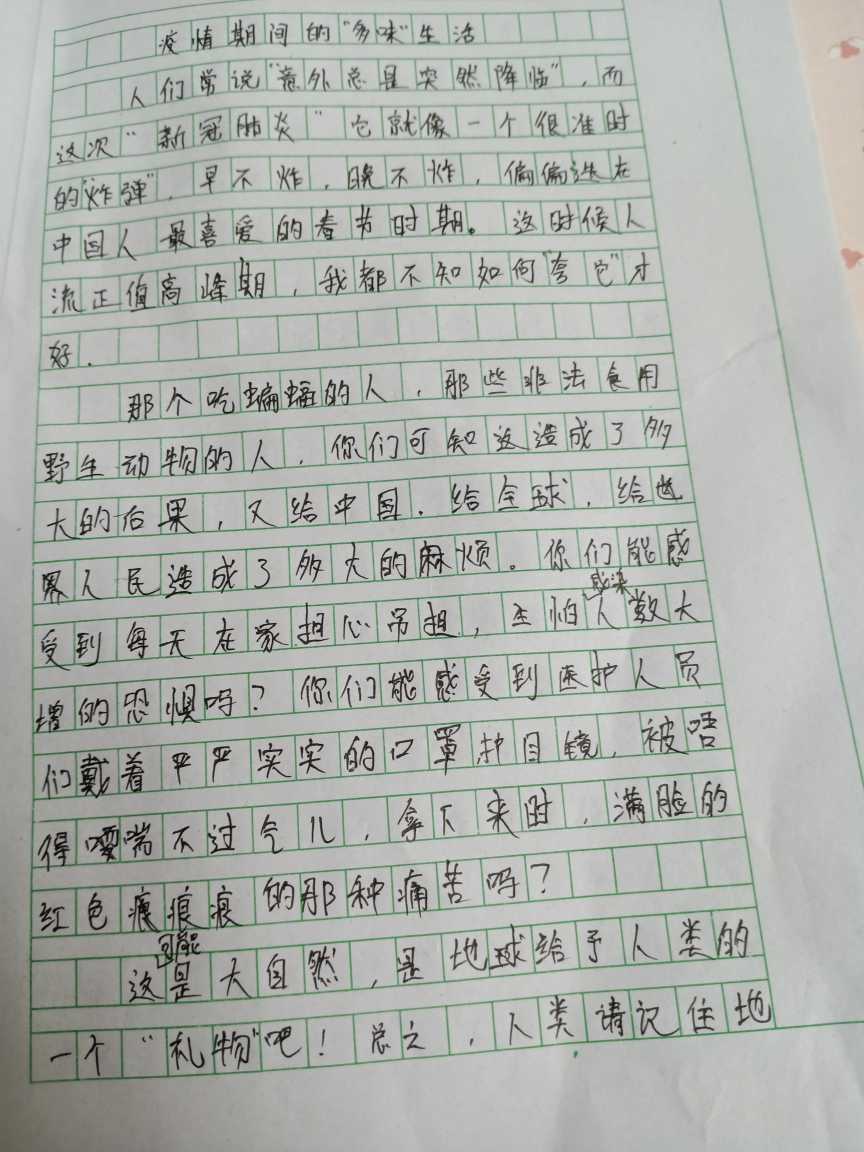 疫情期间的“多味”生活
人们常说“意外总是突然降临”，而
这次“新冠肺炎”它就像一个很准时
的“炸弹”，早不炸，晚不炸，偏偏选在
中国人最喜爱的春节时期。这时候人
流正值高峰期，我都不知如何“夸它”才
好.
那个吃蝙蝠的人，那些非法食用
野生动物的人，你们可知这造成了多
大的后果，又给中国．给全球，给世
界人民造成了多大的麻烦。你们能感
受到每天在家担心吊担，生怕感染人数大
增的恐惧吗？你们能感受到医护人员
们戴着严严实实的口罩护目镜，被唔
得喘不过气儿，拿下来时，满脸的
红色痕痕的那种痛苦吗？
这可能是大自然，是地球给予人类的
一个“礼物”吧！总之，人类请记住地